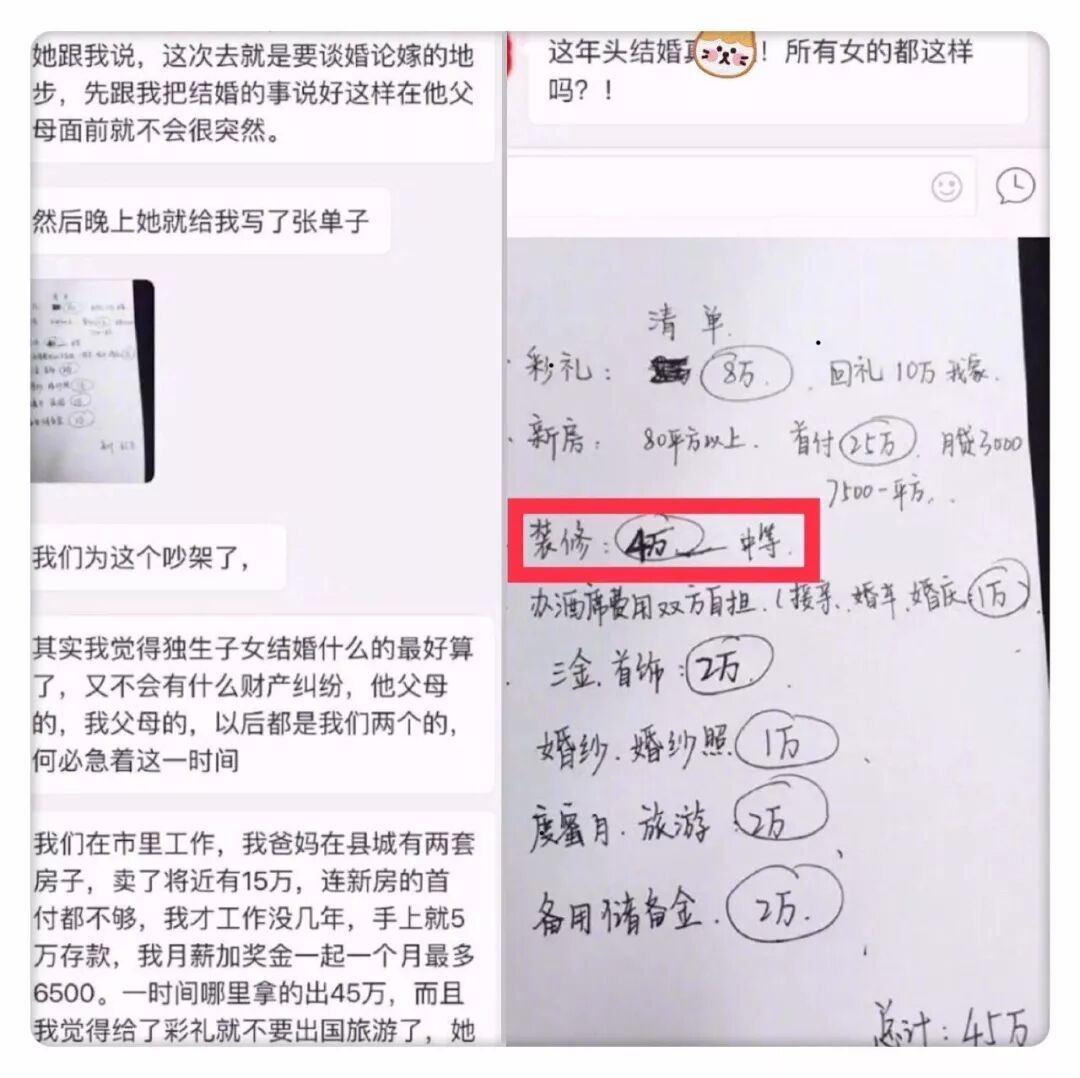 她跟我说，这次去就是要谈婚论嫁的地
步，先跟我把结婚的事说好这样在他父
母面前就不会很突然。
然后晚上她就给我写了张单子
我们为这个吵架了，
其实我觉得独生子女结婚什么的最好算
了，又不会有什么财产纠纷，他父母
的，我父母的，以后都是我们两个的，
何必急着这一时间
我们在市里工作，我爸妈在县城有两套
房子，卖了将近有15万，连新房的首
付都不够，我才工作没几年，手上就5
万存款，我月薪加奖金一起一个月最多
6500。一时间哪里拿的出45万，而且
我觉得给了彩礼就不要出国旅游了，她
这年头结婚真！所有女的都这样
吗？！
清单
彩礼： 8万. 回礼10万我家.
新房： 80平方以上. 首付25万. 月贷3000
7500一平方.
装修：4万 中等.
办酒席费用双方自担.（接亲、婚车、婚庆：1万）
三金.首饰：2万
婚纱.婚纱照 1万
度蜜月.旅游 2万
备用储备金. 2万.
总计：45万